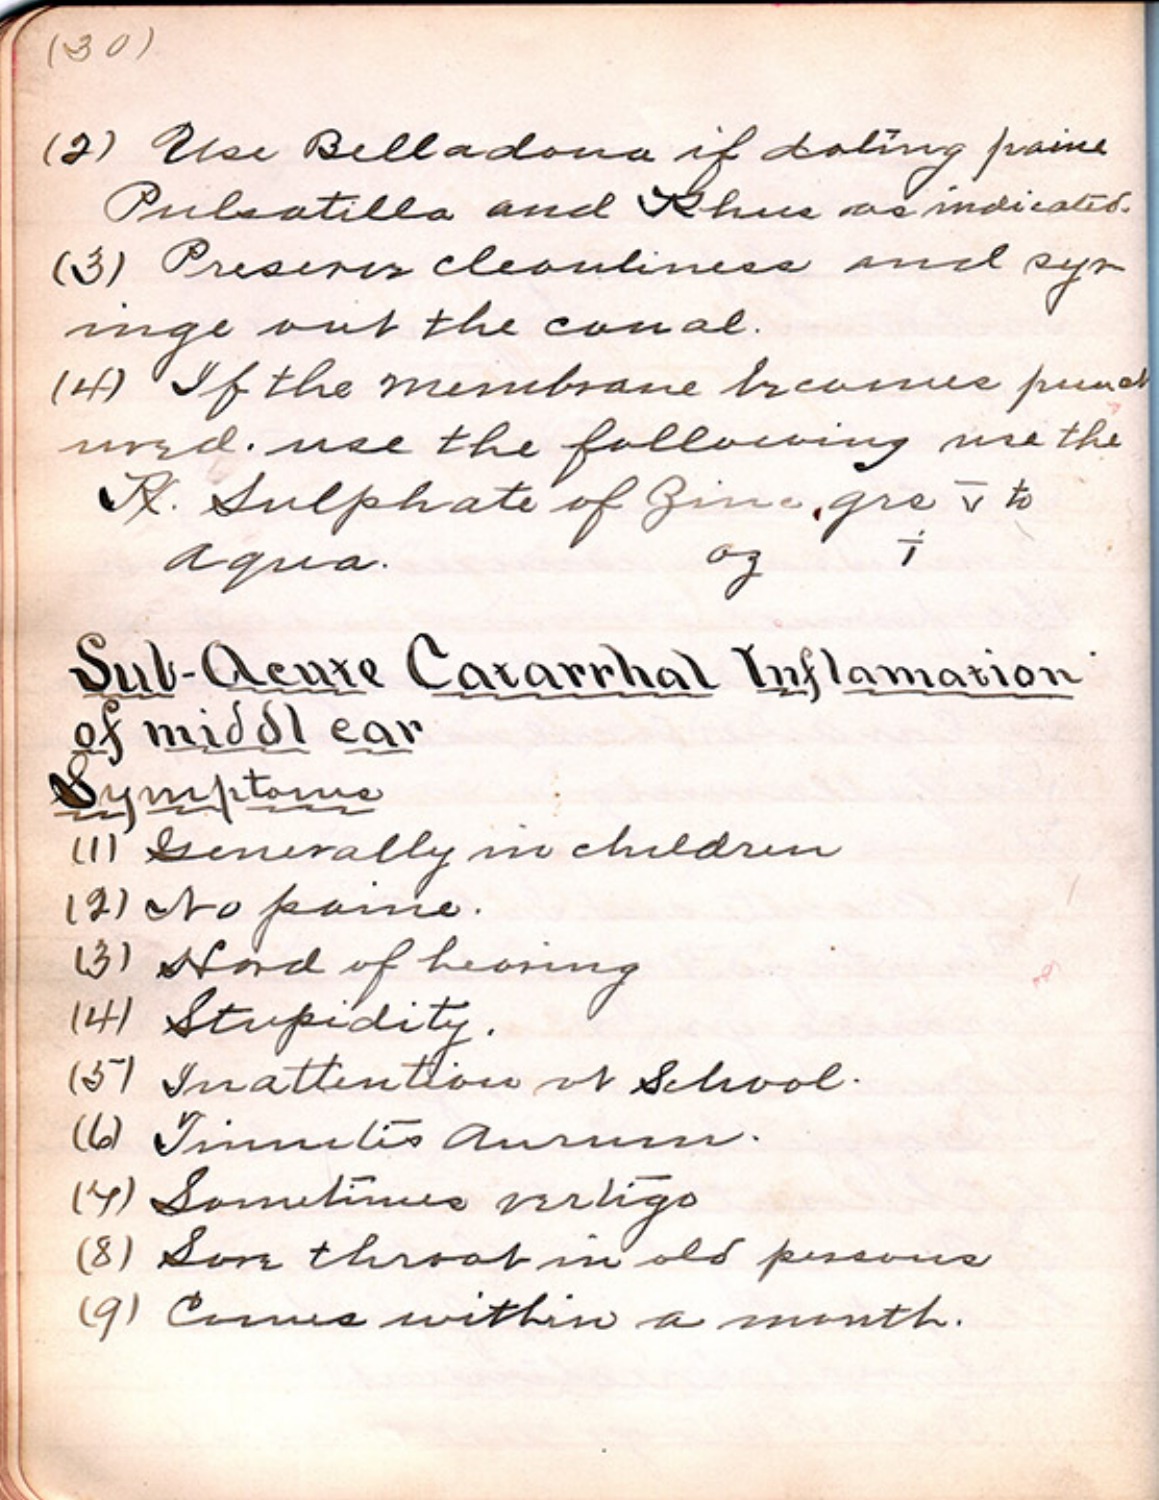 (30)
(2) Use Belladona if doting paine
Pulsatilla and Rhus as indicated.
(3) Preserve cleanliness and syr-
inge out the canal.
(4) If the membrane becomes punct
ured. use the following use the
Rx. Sulphate of Zinc, grs v to
aqua. oz i
Sub-Acute Catarrhal Inflamation
of middl ear
Symptoms
(1) Generally in children
(2) No paine.
(3) Hard of hearing
(4) Stupidity.
(5) Inattention at School.
(6) Tinnitis Aurum.
(7) Sometimes vertigo
(8) Sore throat in old persons
(9) Comes within a month.